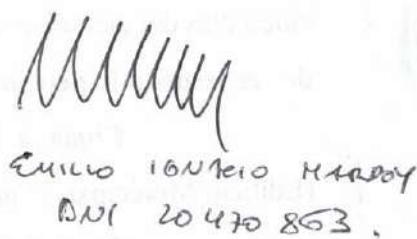 EMILIO IGNACIO HARDOY
DNI 20470863.